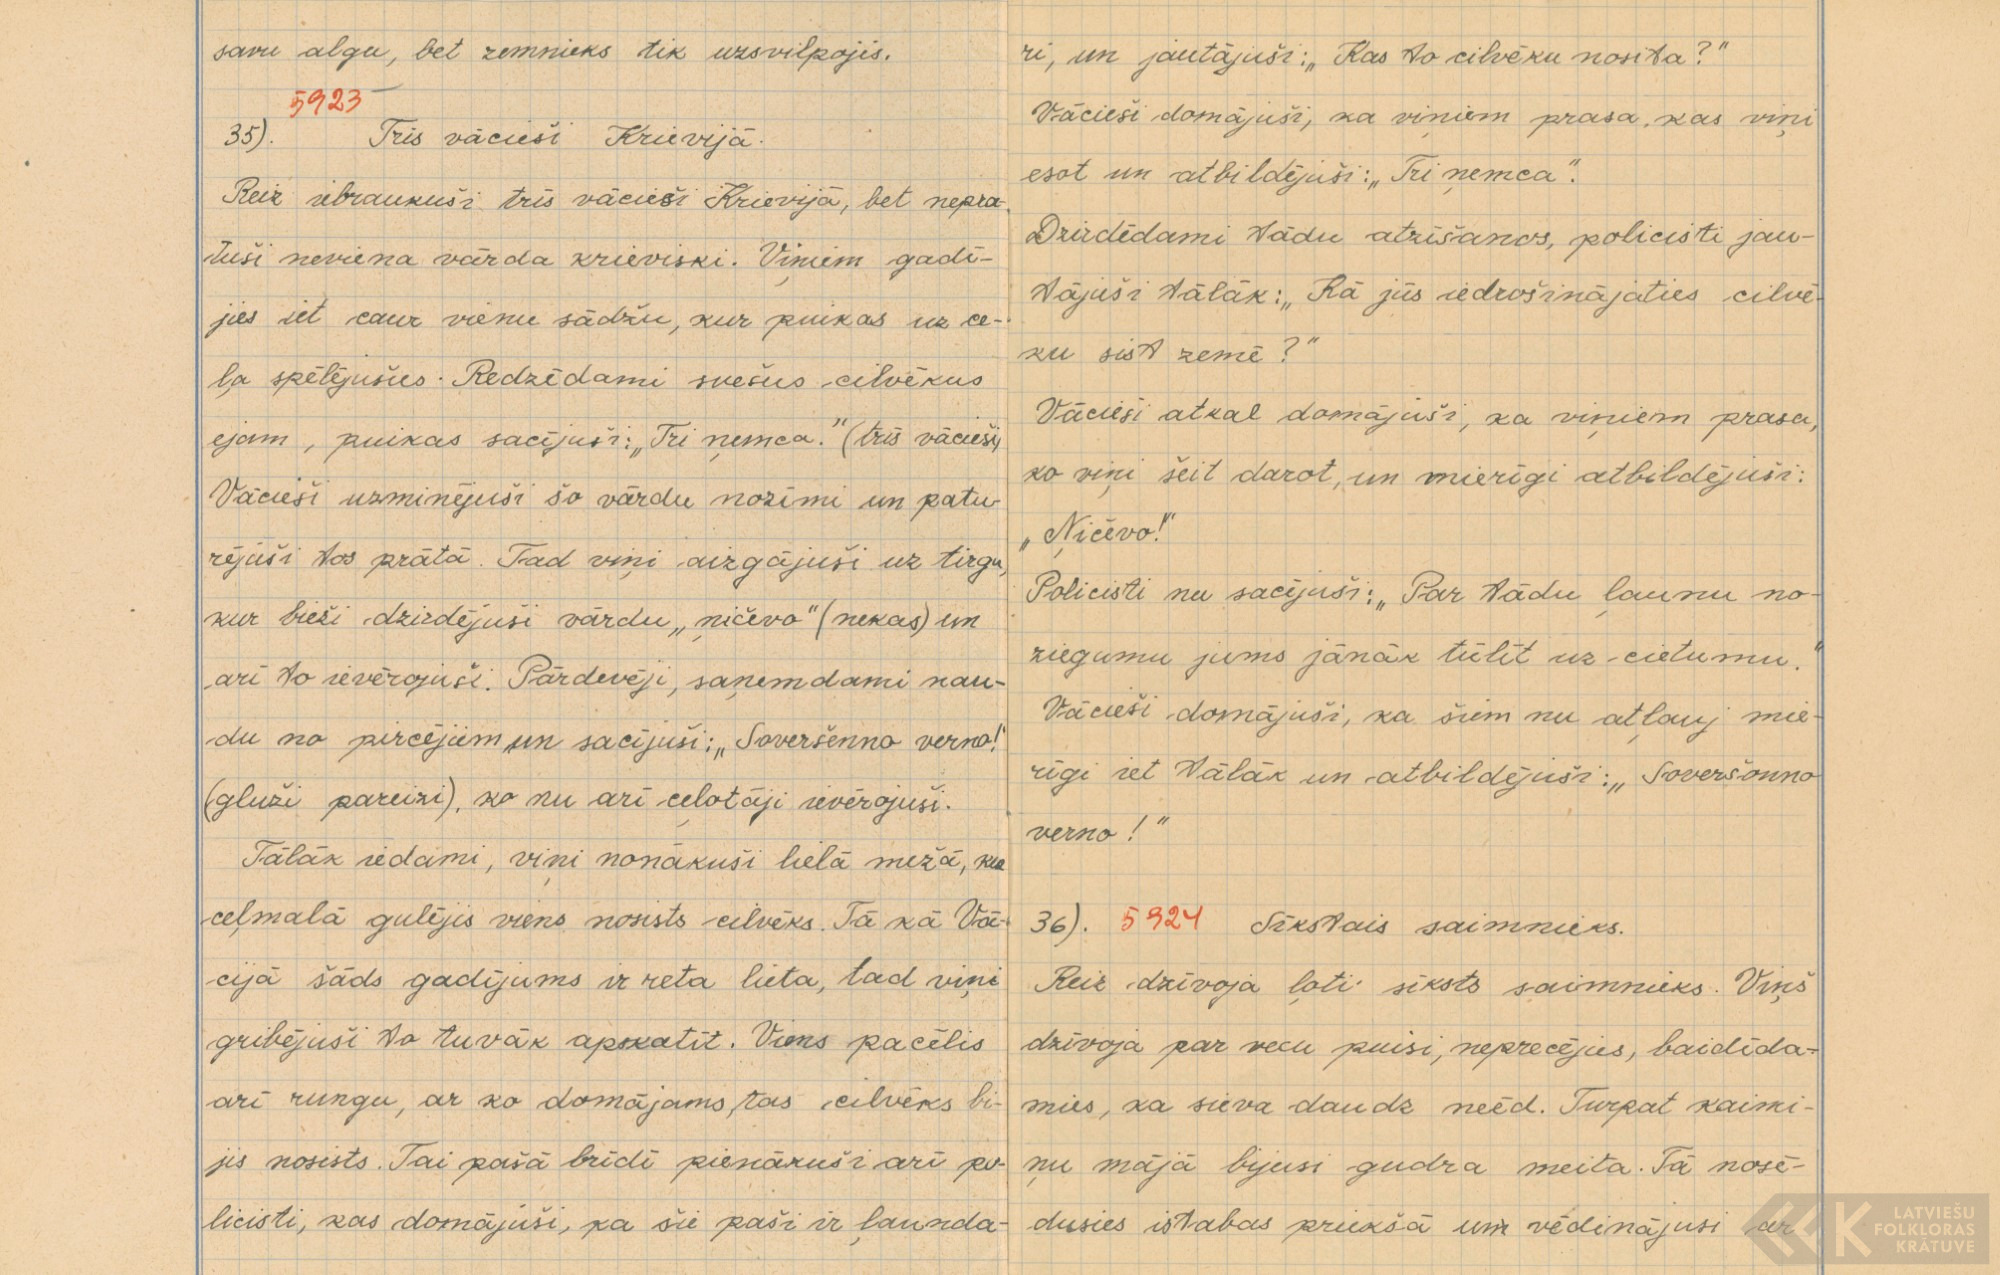 savu algu, bet zemnieks tik uzsvilpojis.
5923
35). Trīs vācieši Krievijā.
Reiz iebraukuši trīs vācieši Krievijā, bet nepra-
tuši neviena vārda krieviski. Viņiem gadī-
jies iet caur vienu sādžu, kur puikas uz ce-
ļa spēlējušies. Redzēdami svešus cilvēkus
ejam, puikas sacījuši: „Tri ņemca." (trīs vācieši)
Vācieši uzminējuši šo vārdu nozīmi un patu-
rējuši tos prātā. Tad viņi aizgājuši uz tirgu,
kur bieži dzirdējuši vārdu „ņičevo" (nekas) un
arī to ievērojuši. Pārdevēji, saņemdami nau-
du no pircējiem, un sacījuši: „Soveršenno verno!"
(gluži pareizi), ko nu arī ceļotāji ievērojuši.
Tālāk iedami, viņi nonākuši lielā mežā, kur
ceļmalā gulējis viens nosists cilvēks. Tā kā Vā-
cijā šāds gadījums ir reta lieta, tad viņi
gribējuši to tuvāk apskatīt. Viens pacēlis
arī rungu, ar ko domājams, tas cilvēks bi-
jis nosists. Tai pašā brīdī pienākuši arī po-
licisti, kas domājuši, ka šie paši ir ļaunda-
ri, un jautājuši: „Kas to cilvēku nosita?"
Vācieši domājuši, ka viņiem prasa, kas viņi
esot un atbildējuši: „Tri ņemca".
Dzirdēdami tādu atzīšanos, policisti jau-
tājuši tālāk: „Kā jūs iedrošinājaties cilvē-
ku sist zemē?"
Vācieši atkal domājuši, ka viņiem prasa,
ko viņi šeit darot, un mierīgi atbildējuši:
„Ņičevo!"
Policisti nu sacījuši: „Par tādu ļaunu no-
ziegumu jums jānāk tūlīt uz cietumu."
Vācieši domājuši, ka šiem nu atļauj mie-
rīgi iet tālāk un atbildējuši: „Soveršonno
verno!"
36). 5924 Sīkstais saimnieks.
Reiz dzīvoja ļoti sīksts saimnieks. Viņš
dzīvoja par vecu puisi, neprecējies, baidīda-
mies, ka sieva daudz neēd. Turpat kaimi-
ņu mājā bijusi gudra meita. Tā nosē-
dusies istabas priekšā un vēdinājusi ar
LATVIEŠU
FOLKLORAS
KRĀTUVE